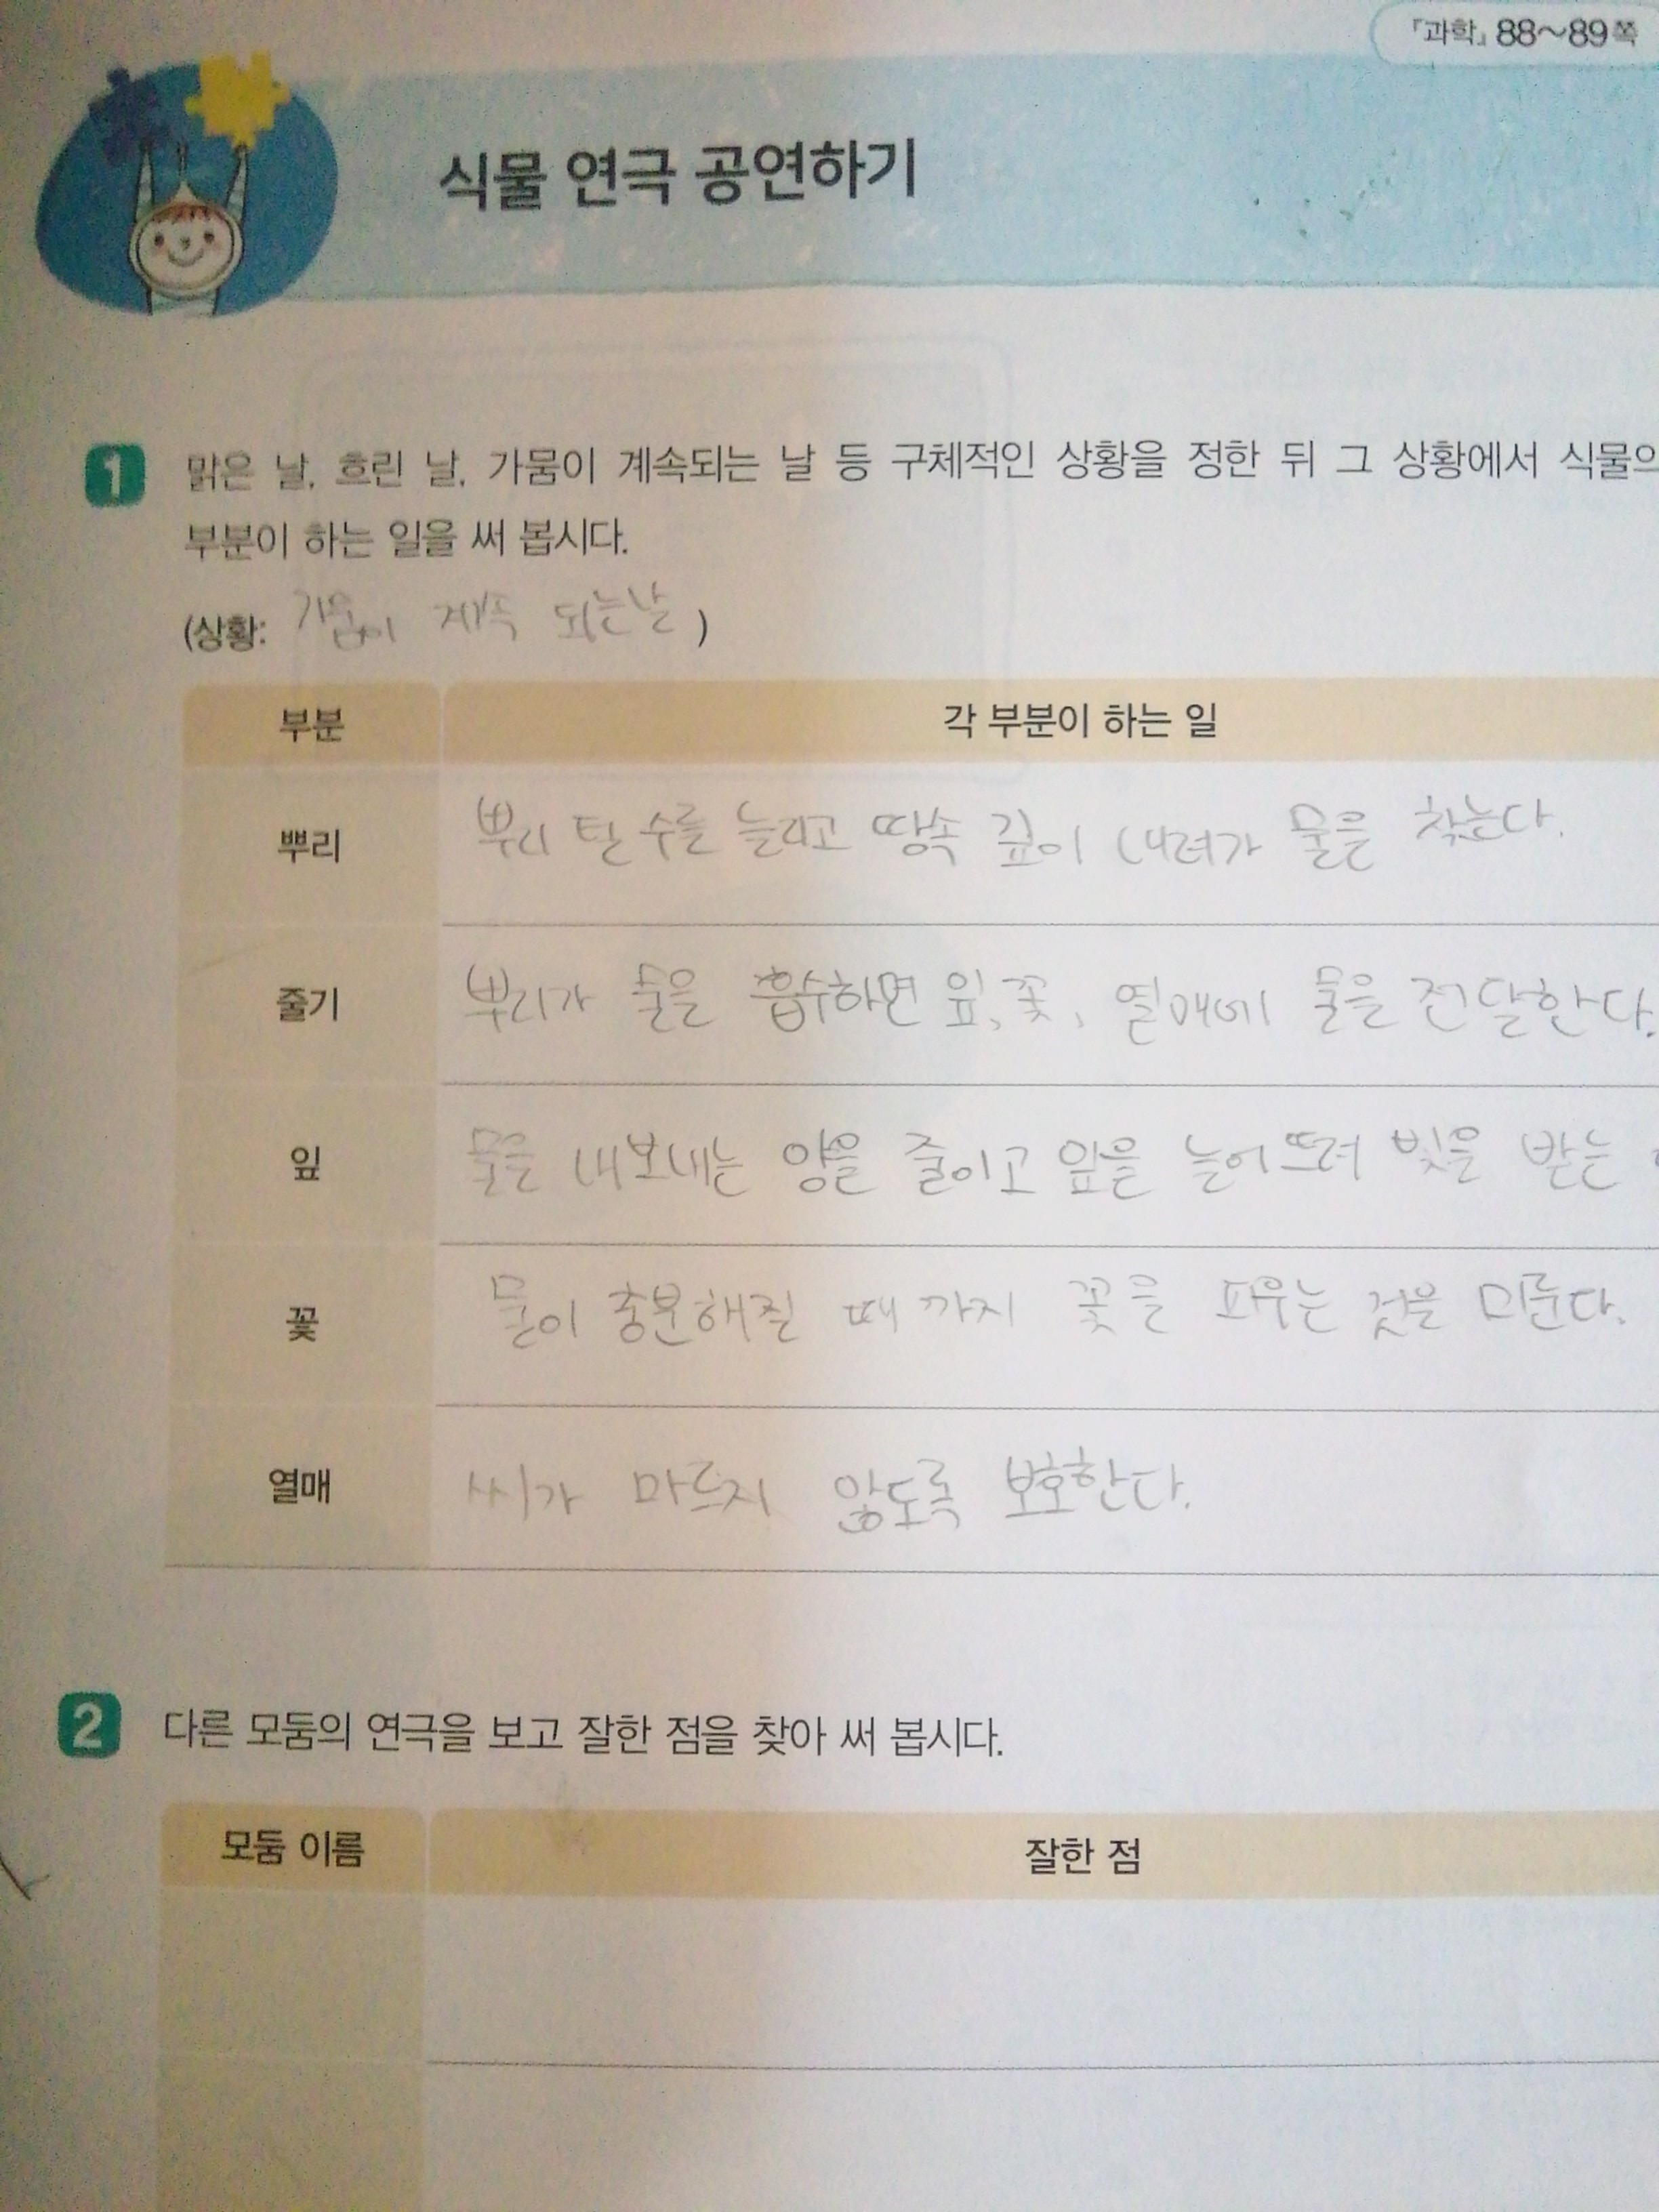 『과학』 88~89쪽
식물 연극 공연하기
1 맑은 날, 흐린 날, 가뭄이 계속되는 날 등 구체적인 상황을 정한 뒤 그 상황에서 식물의
부분이 하는 일을 써 봅시다.
(상황: 가뭄이 계속 되는날 )
부분 각 부분이 하는 일
뿌리 뿌리 털 수를 늘리고 땅속 깊이 내려가 물을 찾는다.
줄기 뿌리가 물을 흡수하면 잎, 꽃, 열매에 물을 전달한다.
잎 물을 내보내는 양을 줄이고 잎을 늘어뜨려 빛을 받는
꽃 물이 충분해질 때 까지 꽃을 피우는 것을 미룬다.
열매 씨가 마르지 않도록 보호한다.
2 다른 모둠의 연극을 보고 잘한 점을 찾아 써 봅시다.
모둠 이름 잘한 점